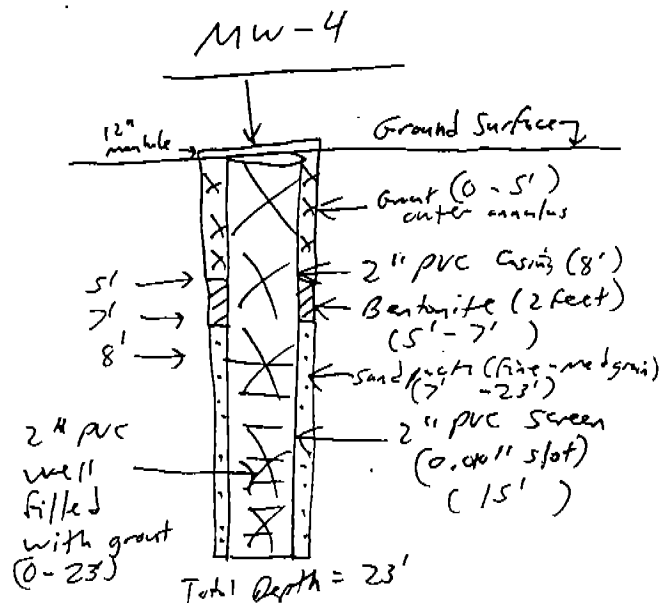 MW-4
12"
manhole
Ground Surface
Grout (0-5')
outer annulus
2" PVC Casing (8')
Bentonite (2 feet)
(5'-7')
5'
7'
8'
Sand pack (fine-med grain)
(7'-23')
2" PVC Screen
(0.010" slot)
(15')
2" PVC
well
filled
with grout
(0-23')
Total Depth = 23'